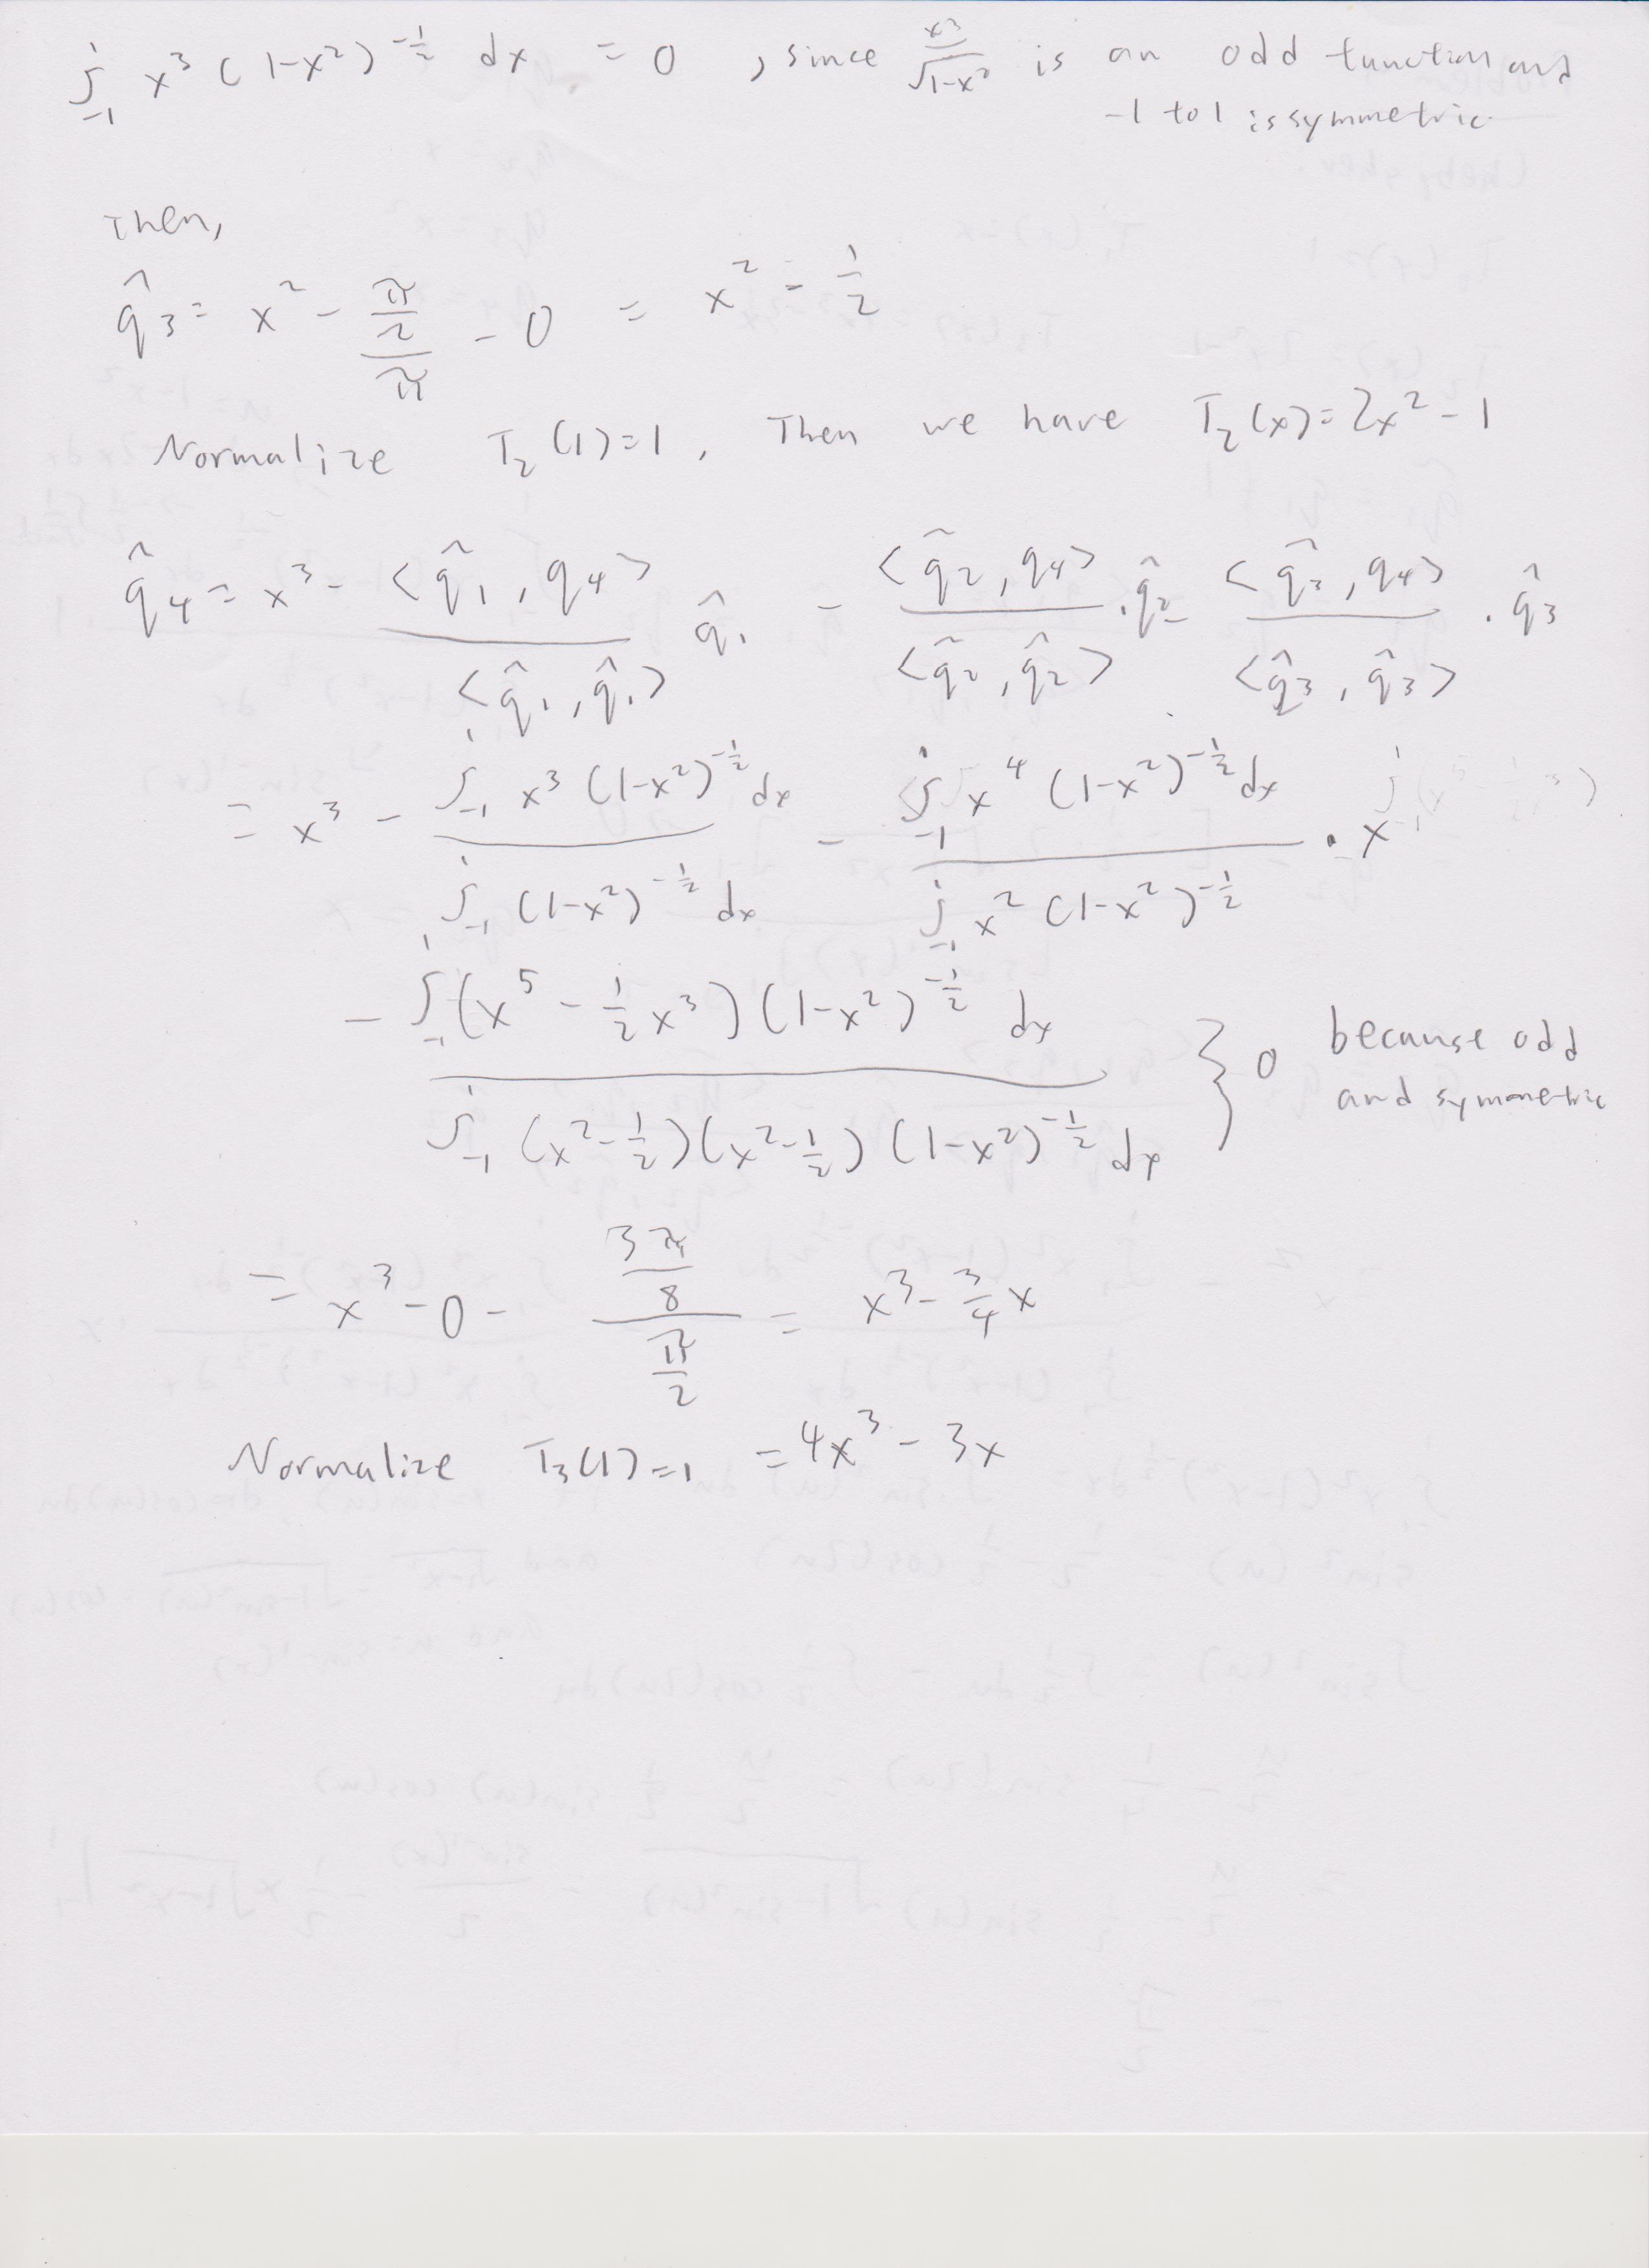 ∫₋₁¹ x³ (1-x²)^{-1/2} dx = 0 , since x³/√(1-x²) is an odd function and
-1 to 1 is symmetric.
Then,
q̂₃ = x² - (π/2)/π - 0 = x² - 1/2
Normalize T₂(1)=1, Then we have T₂(x)=2x²-1
q̂₄ = x³ - <q̂₁, q₄>/<q̂₁, q̂₁> q̂₁ - <q̂₂, q₄>/<q̂₂, q̂₂> · q̂₂ - <q̂₃, q₄>/<q̂₃, q̂₃> · q̂₃
= x³ - ∫₋₁¹ x³ (1-x²)^{-1/2} dx / ∫₋₁¹ (1-x²)^{-1/2} dx - ∫₋₁¹ x⁴ (1-x²)^{-1/2} dx / ∫₋₁¹ x² (1-x²)^{-1/2} · x
- ∫₋₁¹ (x⁵ - 1/2 x³) (1-x²)^{-1/2} dx / ∫₋₁¹ (x²-1/2)(x²-1/2) (1-x²)^{-1/2} dx } 0 because odd
and symmetric
= x³ - 0 - (3π/8)/(π/2) = x³ - 3/4 x
Normalize T₃(1)=1 = 4x³ - 3x